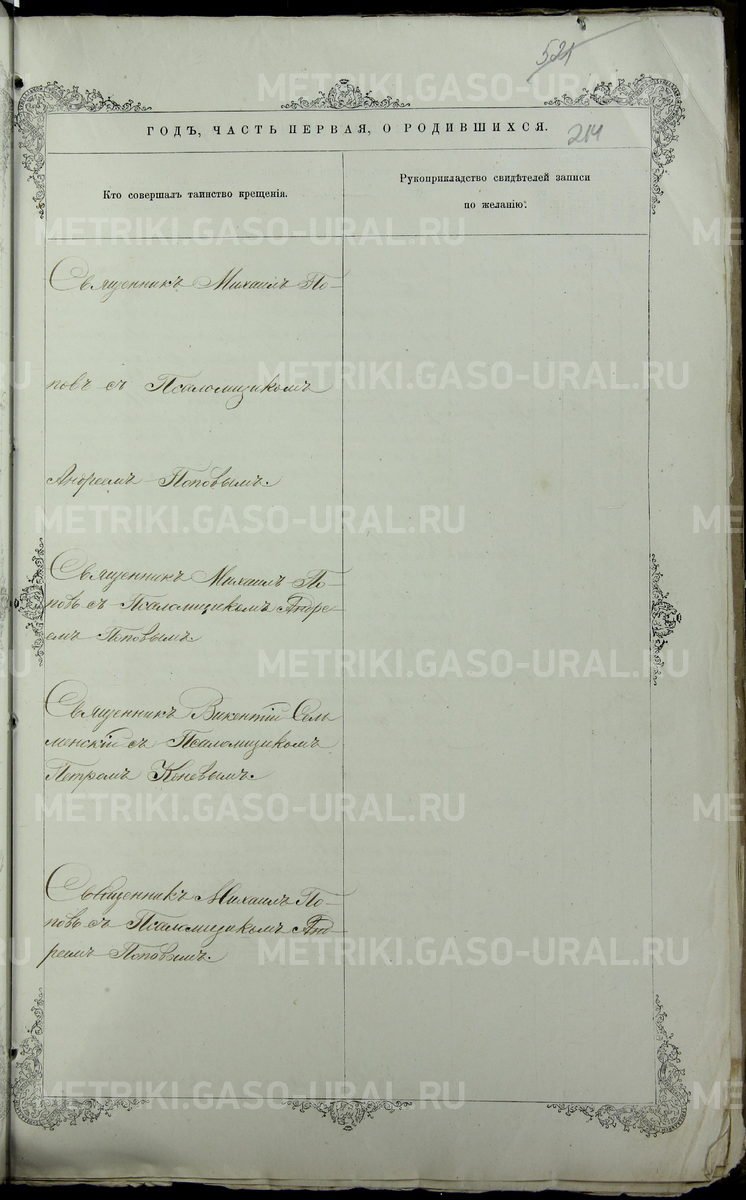 521
ГОДЪ, ЧАСТЬ ПЕРВАЯ, О РОДИВШИХСЯ.
214
Кто совершалъ таинство крещенія.
Рукоприкладство свидѣтелей записи
по желанію.
Священникъ Михаилъ По-
повъ съ Псаломщикомъ
Андреемъ Поповымъ.
Священникъ Михаилъ По-
повъ съ Псаломщикомъ Андре-
емъ Поповымъ.
Священникъ Викентій Сель
менскій съ Псаломщикомъ
Петромъ Коневымъ.
Священникъ Михаилъ По-
повъ съ Псаломщикомъ Анд-
реемъ Поповымъ.
METRIKI.GASO-URAL.RU